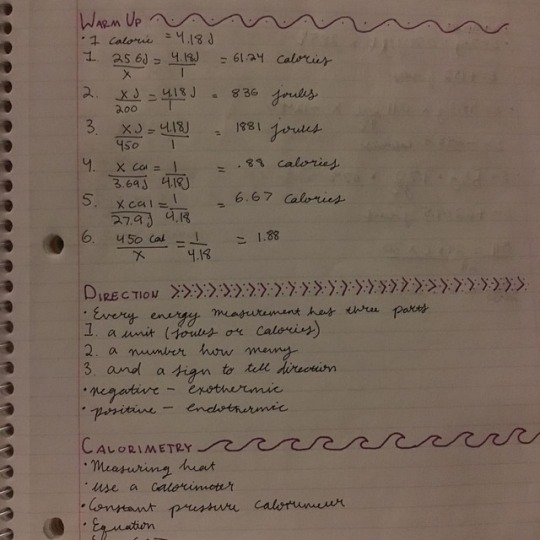 Warm Up
• 1 calorie = 4.18 J
1. 256J/x = 4.18J/1 = 61.24 calories
2. x J/200 = 4.18 J/1 = 836 joules
3. x J/450 = 4.18J/1 = 1881 joules
4. x cal/3.69J = 1/4.18J = .88 calories
5. x cal/27.9J = 1/4.18 = 6.67 calories
6. 450 cal/x = 1/4.18 = 1.88
Direction
• Every energy measurement has three parts
1. a unit (joules or calories)
2. a number how many
3. and a sign to tell direction
• negative – exothermic
• positive – endothermic
Calorimetry
• Measuring heat
• use a calorimeter
• Constant pressure calorimeter
• Equation